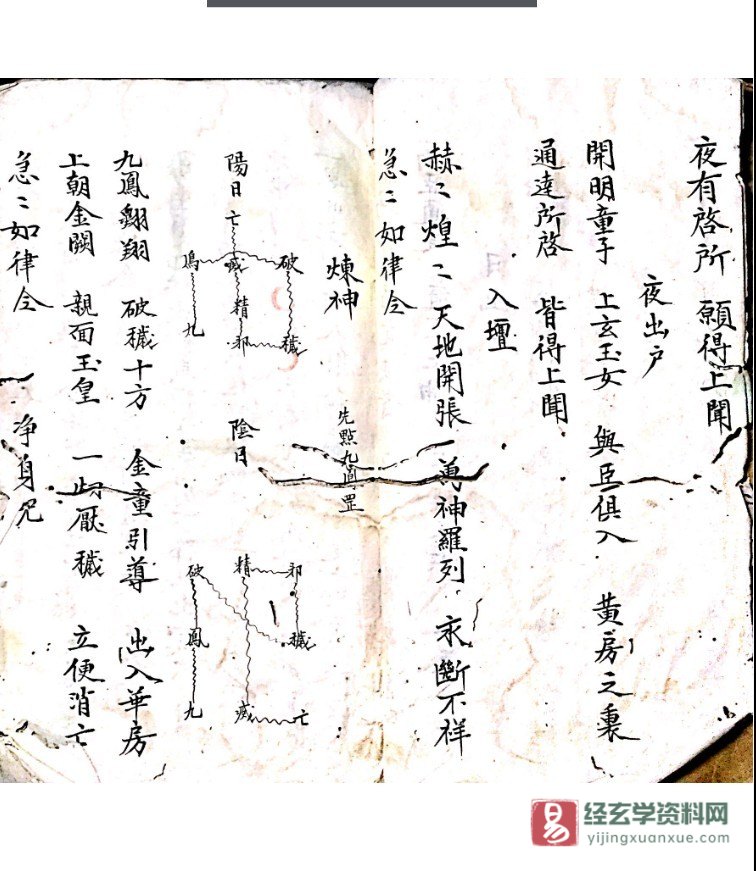 夜有啓所　願得上聞
夜出户
開明童子　上玄玉女　與臣俱入　黃房之裏
通達所啓　皆得上聞
入壇
赫〻煌〻　天地開張　萬神羅列　永斷不祥
急〻如律令
煉神
先點九鳳罡
陽日
亡
鳳 瘟 破
精
九 邪 穢
陰日
破 精 邪
鳳 穢
九 瘟 亡
九鳳翱翔　破穢十方　金童引導　出入華房
上朝金闕　親面玉皇　一切厭穢　立便消亡
急〻如律令　净身咒
易
经玄学资料网
yijingxuanxue.com